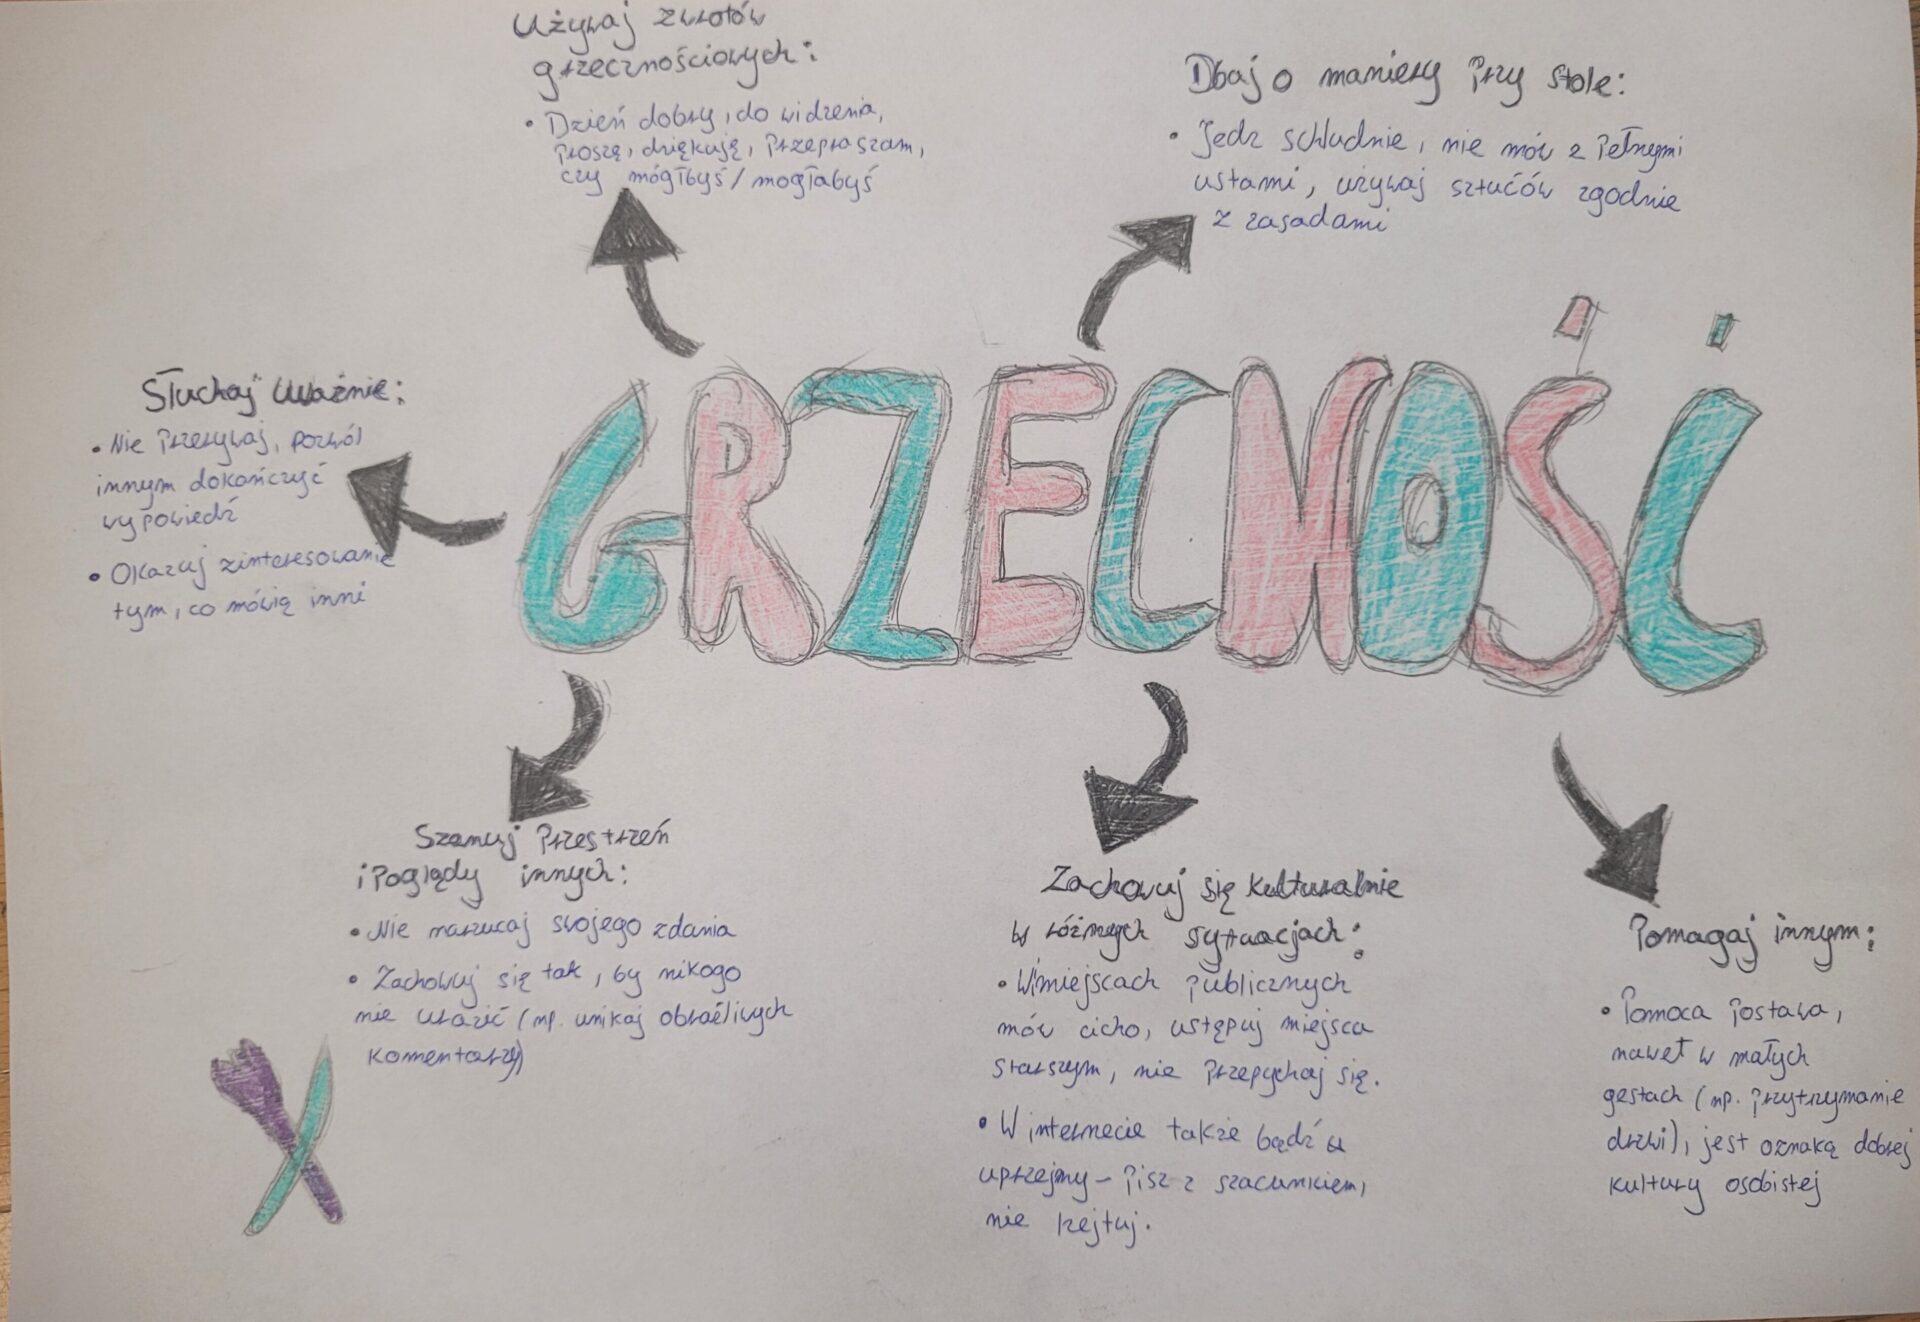 Używaj zwrotów
grzecznościowych:
• Dzień dobry, do widzenia,
proszę, dziękuję, przepraszam,
czy mógłbyś/mogłabyś
Dbaj o maniery przy stole:
• Jedz schludnie, nie mów z pełnymi
ustami, używaj sztućów zgodnie
z zasadami
Słuchaj uważnie:
• Nie przerywaj, pozwól
innym dokończyć
wypowiedź
• Okazuj zinteresowanie
tym, co mówią inni
GRZECNOŚĆ
Szanuj przestrzeń
i poglądy innych:
• Nie narzucaj swojego zdania
• Zachowuj się tak, by nikogo
nie urazić (np. unikaj obraźliwych
komentarzy)
Zachowuj się kulturalnie
w różnych sytuacjach:
• W miejscach publicznych
mów cicho, ustępuj miejsca
starszym, nie przepychaj się.
• W internecie także bądź
uprzejmy – pisz z szacunkiem,
nie hejtuj.
Pomagaj innym:
• Pomoca postawa,
nawet w małych
gestach (np. przytrzymanie
drzwi), jest oznaką dobrej
kultury osobistej